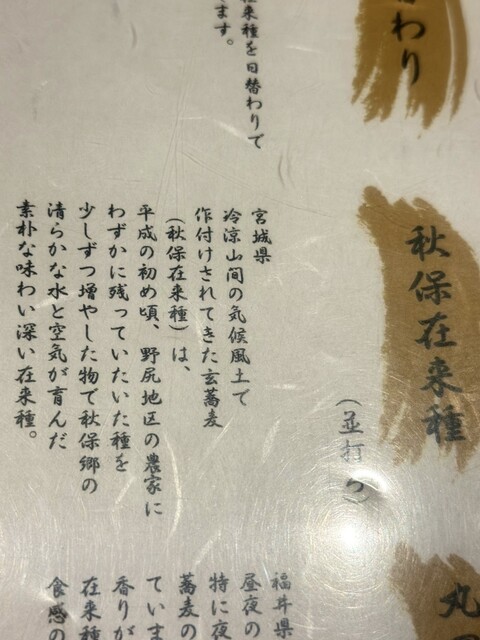 替わり
在来種を日替わりで
ます。
秋保在来種
(並打ち)
宮城県
冷涼山間の気候風土で
作付けされてきた玄蕎麦
(秋保在来種)は、
平成の初め頃、野尻地区の農家に
わずかに残っていたいた種を
少しずつ増やした物で秋保郷の
清らかな水と空気が育んだ
素朴な味わい深い在来種。
丸
福井県
昼夜の
特に夜
蕎麦の
ていま
香りが
在来種
食感の